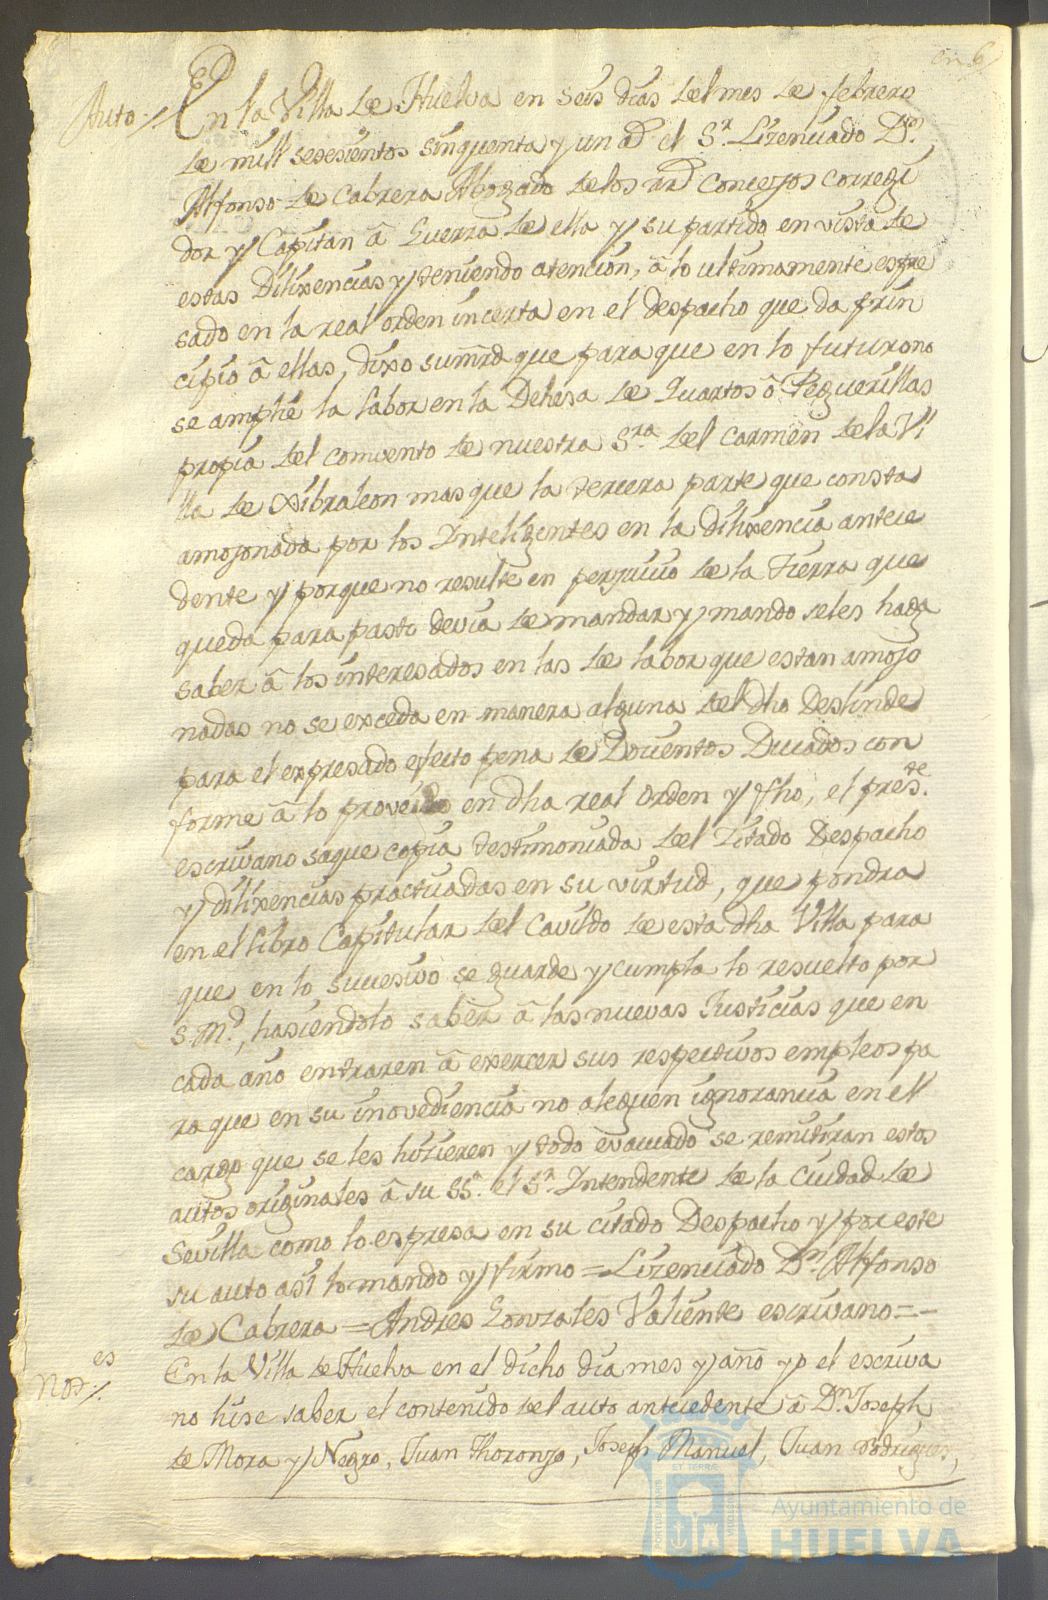 Auto // En la Villa de Huelva en seis dias del mes de febrero
de mill sesesientos sinquenta y un a.s el S.r Lizenciado D.n
Alfonso de Cabrera Abogado de los r.s Concejos Corregi
dor y Capitan â Guerra de ella y su partido en vista de
estas Dilixencias y teniendo atencion, â lo ultimamente espre
sado en la real orden incerta en el despacho que da prin
cipio â ellas, dixo sumrd que para que en lo futuro no
se amplie la labor en la Dehesa de Quartos ô Peguerillas
propia del comvento de nuestra S.ra del Carmen de la Vi
lla de Xibraleon mas que la tercera parte que consta
amojonada por los Inteligentes en la dilixencia antece
dente y porque no resulte en perjuicio de la tierra que
queda para pasto devia de mandar y mando seles haga
saber â los interesados en las de labor que estan amojo
nadas no se exceda en manera alguna del dho Deslinde
para el expresado efecto pena de Docientos Ducados con
forme â lo proveido en dha real orden y fho, el pres.te
escrivano saque copia testimoniada del Zitado Despacho
y dilixencias practicadas en su virtud, que pondra
en el libro Capitular del Cavildo de esta dha Villa para
que en lo sucesivo se guarde y cumpla lo resuelto por
S.M.d, hasiendolo saber â las nuevas Justicias que en
cada año entraren â exercer sus respectivos empleos pa
ra que en su inovediencia no aleguen ignorancia en el
cargo que se les hizieren y todo evacuado se remitiran estos
autos originales â su SS.a el S.r Intendente de la Ciudad de
Sevilla como lo espresa en su citado Despacho y por este
su auto asi lo mando y firmo = Lizenciado D.n Alfonso
de Cabrera = Andres Gonzales Valiente escrivano = -
Not.es // En la Villa de Huelva en el dicho dia mes y año yo el escriva
no hise saber el contenido del auto antecedente â D.n Joseph
de Mora y Negro, Juan Thoronjo, Joseph Manuel, Juan Rodrigues,
Ayuntamiento de
HUELVA